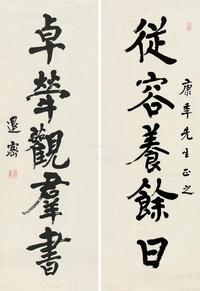 從容養餘日
康年先生正之
卓犖觀羣書
退密